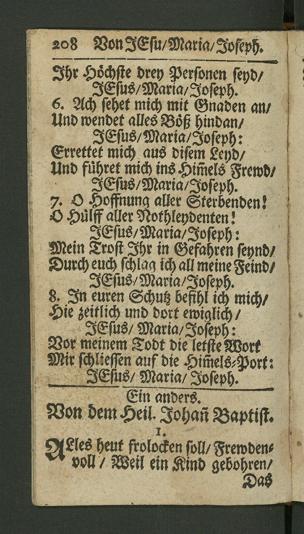 208 Von JEsu/Maria/Joseph.
Ihr Höchste drey Personen seyd/
JEsus/Maria/Joseph.
6. Ach sehet mich mit Gnaden an/
Und wendet alles Böß hindan/
JEsus/Maria/Joseph:
Errettet mich aus disem Leyd/
Und führet mich ins Him̃els Frewd/
JEsus/Maria/Joseph.
7. O Hoffnung aller Sterbenden!
O Hülff aller Nothleydenten!
JEsus/Maria/Joseph:
Mein Trost Ihr in Gefahren seynd/
Durch euch schlag ich all meine Feind/
JEsus/Maria/Joseph.
8. In euren Schutz befihl ich mich/
Hie zeitlich und dort ewiglich/
JEsus/ Maria/Joseph:
Vor meinem Todt die letste Wort
Mir schliessen auf die Him̃els-Port:
JEsus/ Maria/ Joseph.
Ein anders.
Von dem Heil. Johan̄ Baptist.
1.
ALles heut frolocken soll/ Frewden-
voll / Weil ein Kind gebohren/
Das